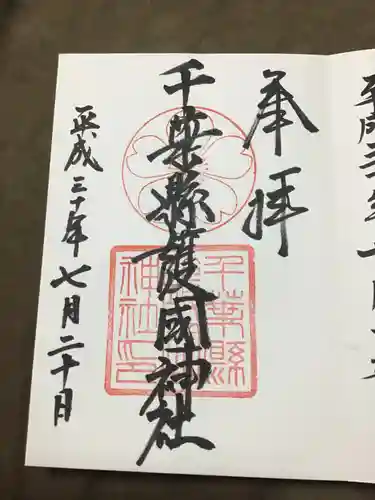 奉拝
千葉縣護國神社
千葉縣
護國
神社印
平成三十年七月二十日